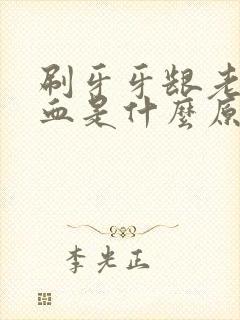 刷牙牙龈老
血是什麼原
李光正